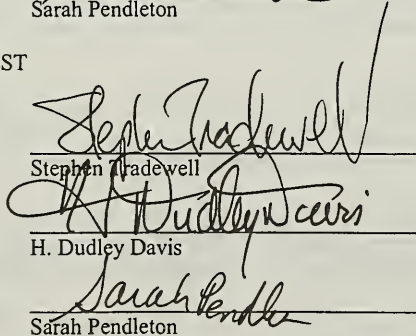 Sarah Pendleton
ST
Stephen Tradewell
Stephen Tradewell
H Dudley Davis
H. Dudley Davis
Sarah Pendle
Sarah Pendleton